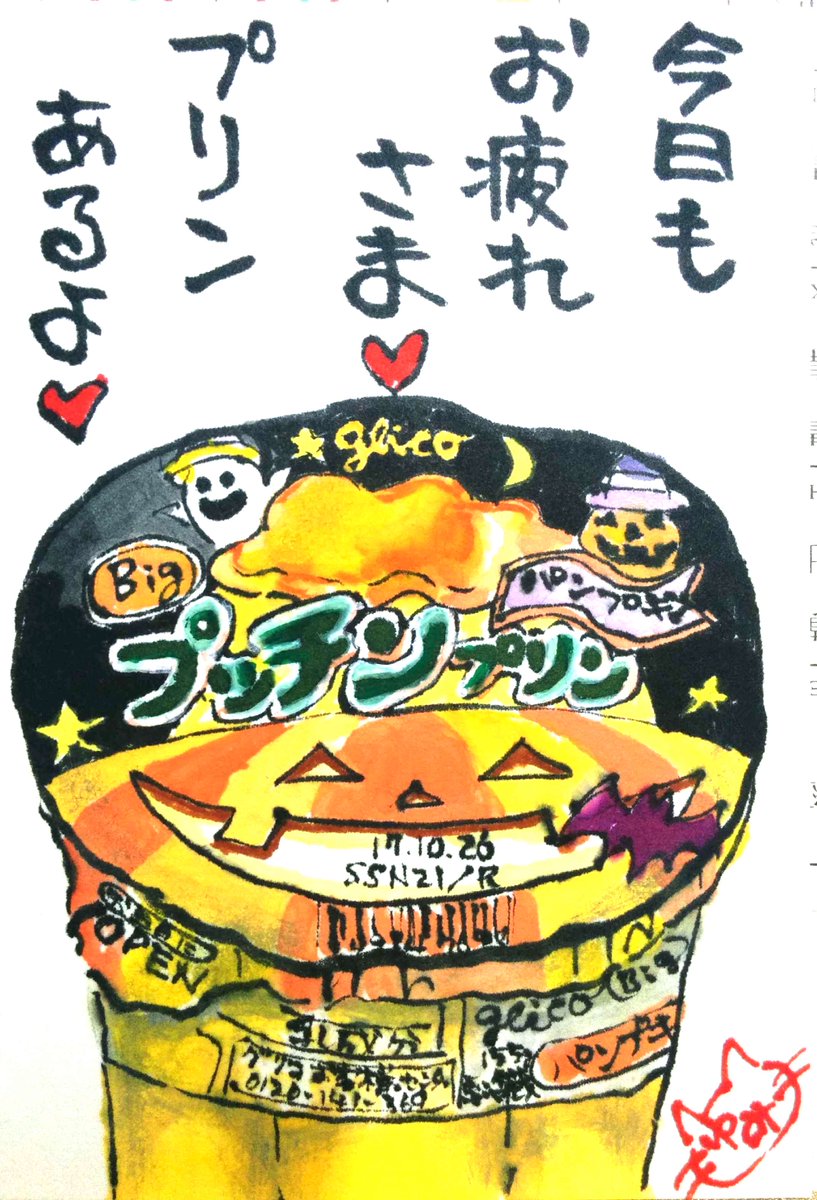 今日も
お疲れ
さま
プリン
あるよ
glico
Big
パンプキン
プッチンプリン
17.10.26
SSN21/R
OPEN
glico Big
グリコお客様センター
0120-141-369